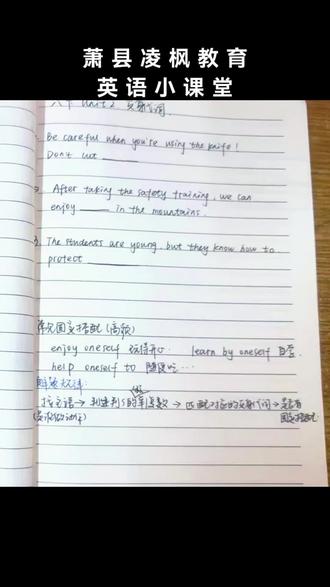 萧县凌枫教育
英语小课堂
八下 Unit 2 反身代词
1. Be careful when you're using the knife!
Don't cut ______
2. After taking the safety training, we can
enjoy ______ in the mountains.
3. The students are young, but they know how to
protect ______
常见固定搭配(高频)
enjoy oneself 玩得开心 learn by oneself 自学
help oneself to 随便吃…
解题方法:
找主语→判断主语的单复数→匹配对应的反身代词→是否有
固定搭配